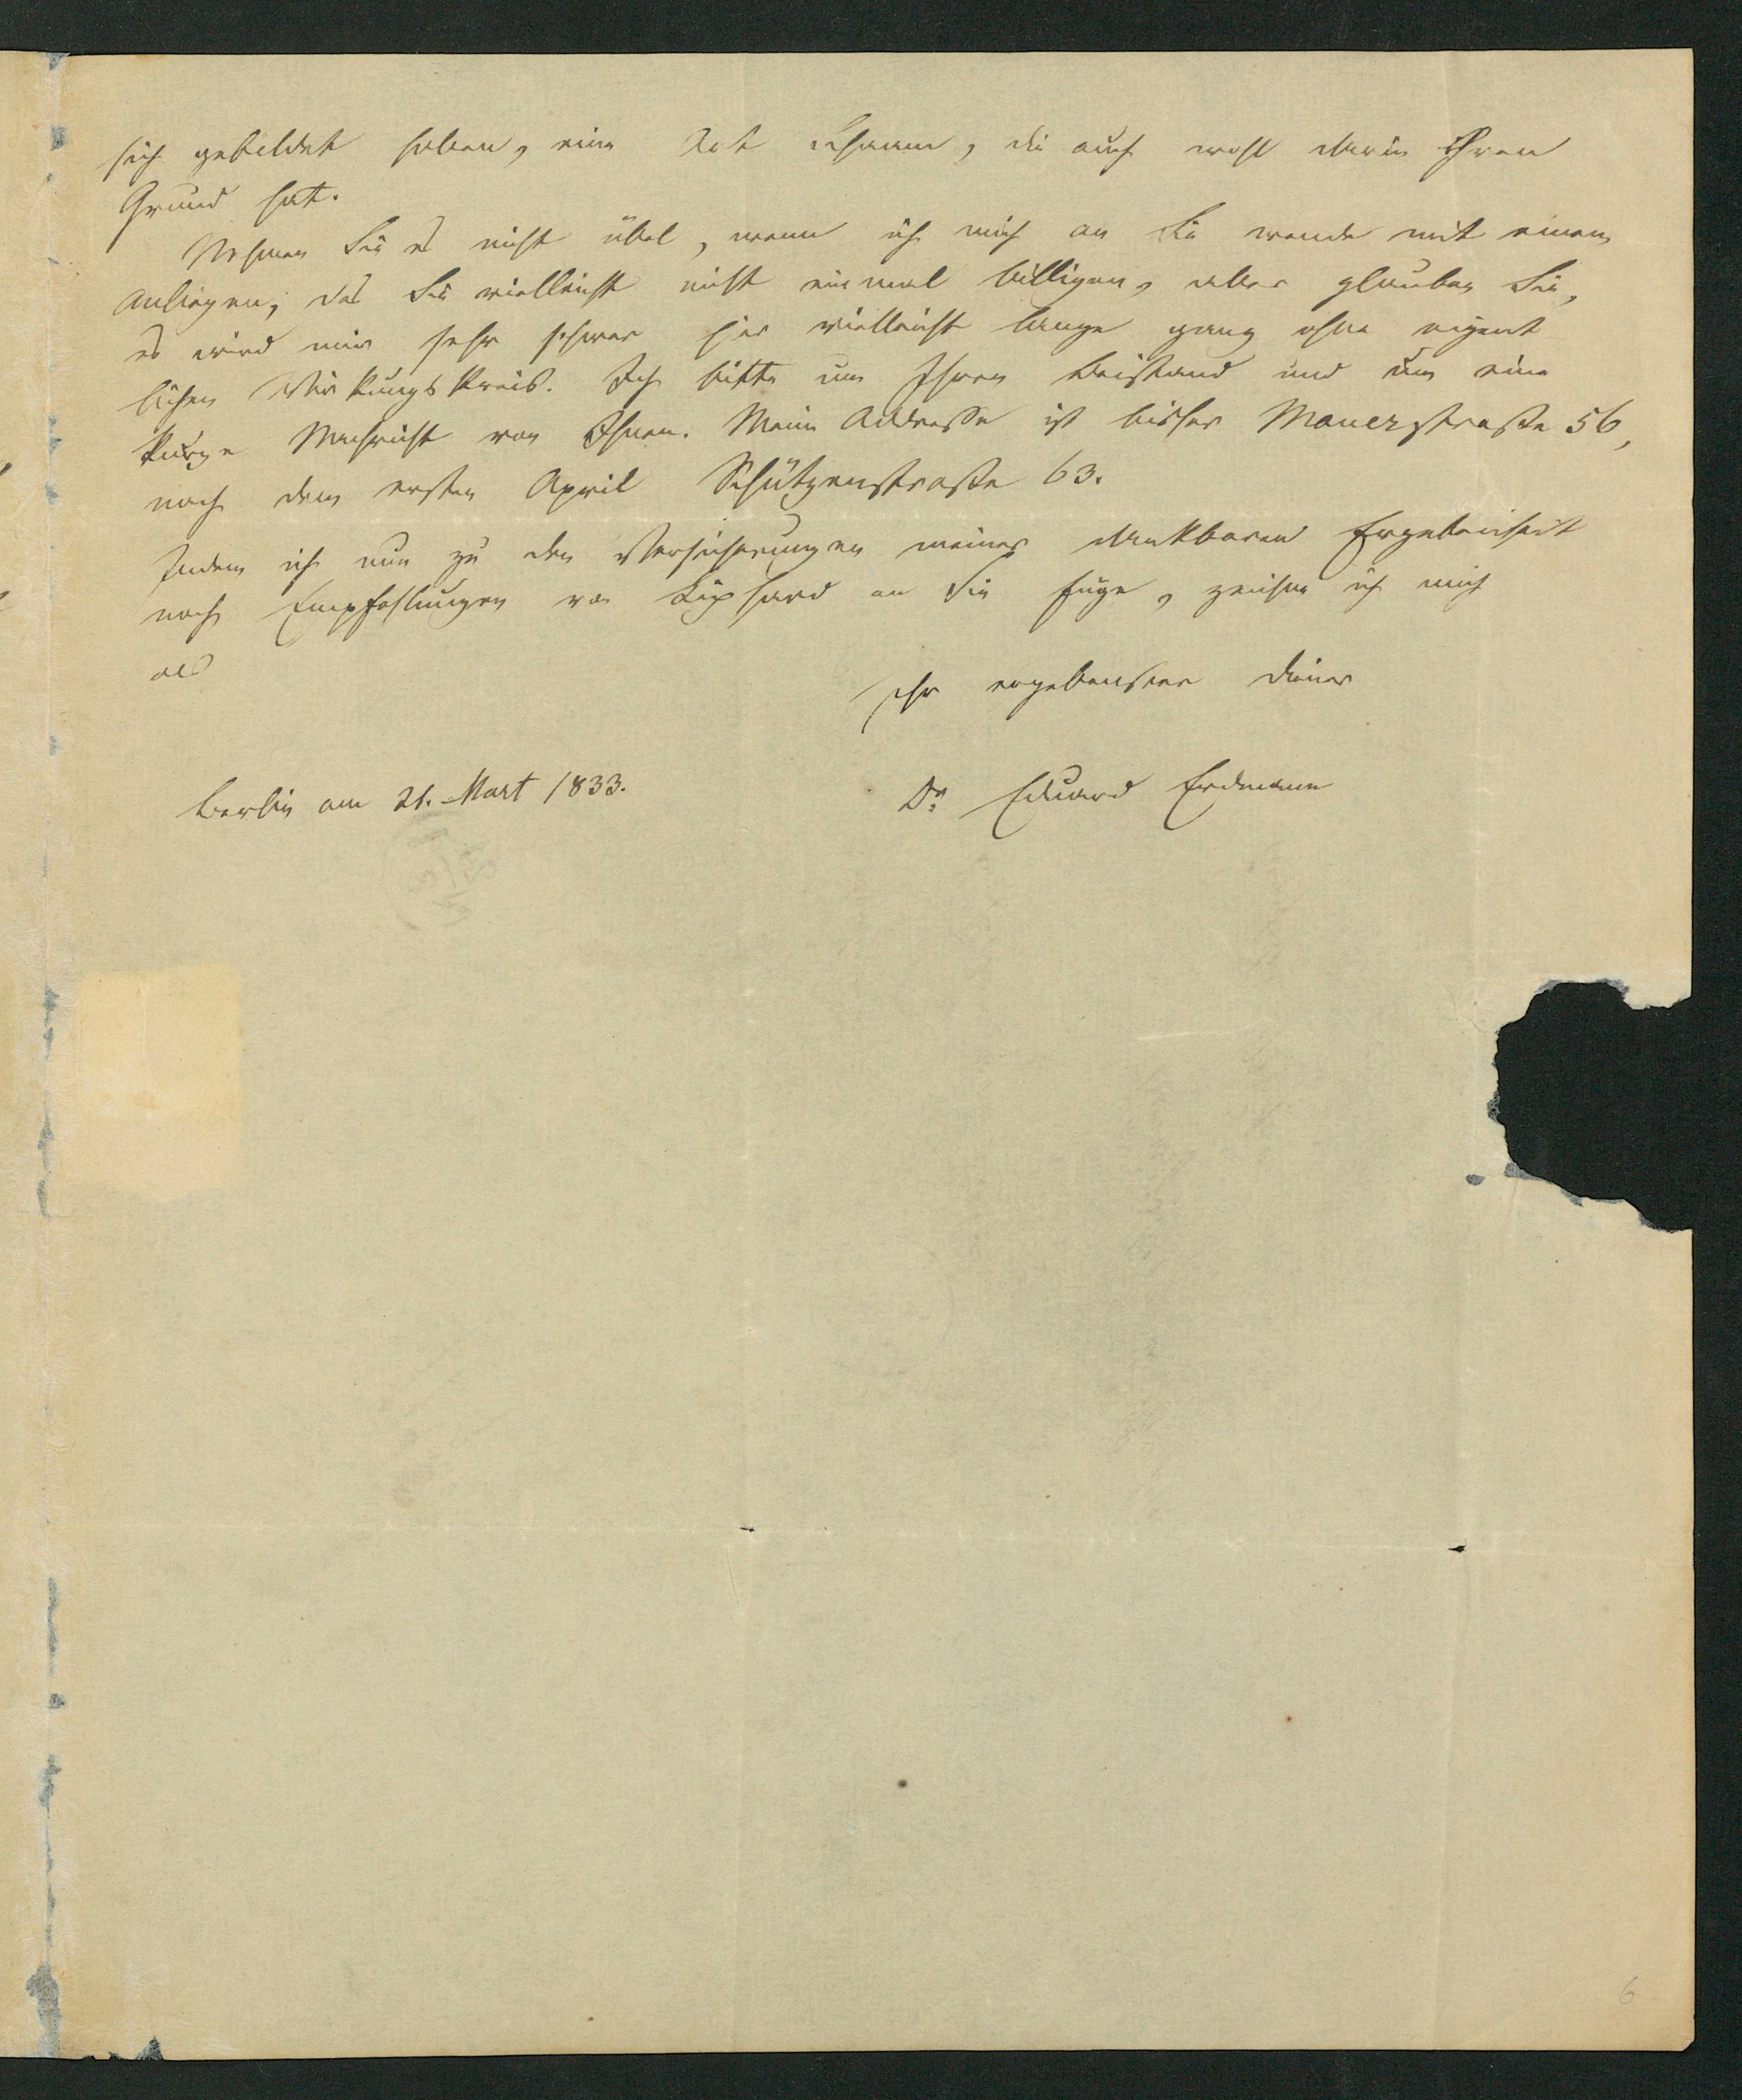 sich gebildet haben, eine Art Scham, die auch wohl darin Ihren
Grund hat.
Nehmen Sie es nicht übel, wenn ich mich an Sie wende mit einem
Anliegen, das Sie vielleicht nicht einmal billigen, aber glauben Sie,
es wird mir sehr schwer hier vielleicht lange ganz ohne eigent
lichen Wirkungskreis. Ich bitte um Ihren Beistand und um eine
kurze Nachricht von Ihnen. Meine Addresse ist bisher Mauerstraße 56,
nach dem ersten April Schützenstraße 63.
Indem ich nun zu den Versicherungen meiner dankbaren Ergebenheit
noch Empfehlungen von an Sie füge, zeichne ich mich
als
Ihr ergebenster Diener
Berlin am 21. Mart 1833.
Dr Eduard Erdmann
6